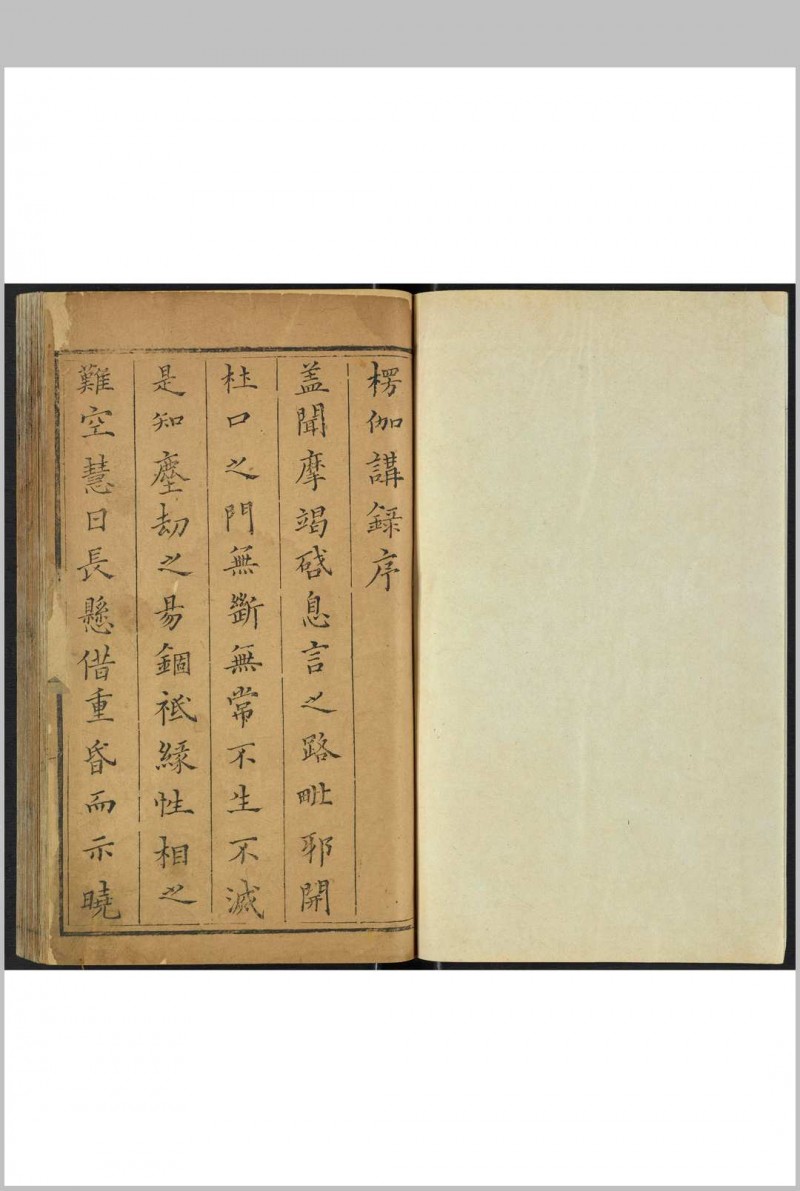 楞伽講錄序
盖聞摩竭啓息言之路毗耶開
杜口之門無斷無常不生不滅
是知塵劫之易錮祇緣性相之
難空慧日長懸借重昏而示曉